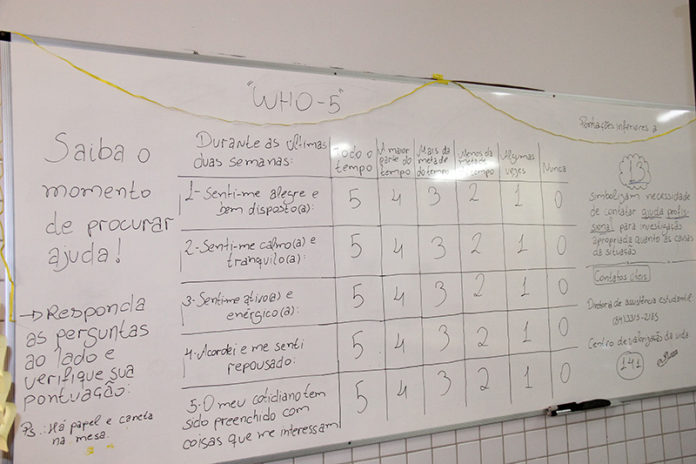 "WHO-5"
Saiba o
momento
de procurar
ajuda!
→Responda
as perguntas
ao lado e
verifique sua
pontuação:
Ps.: Há papel e caneta
na mesa.
Durante as últimas
duas semanas:
Todo o
tempo
A maior
parte do
tempo
Mais da
metade
do tempo
Menos da
metade
do tempo
Algumas
vezes
Nunca
1- Senti-me alegre e
bem disposto(a):
5 4 3 2 1 0
2- Senti-me calmo(a) e
tranquilo(a):
5 4 3 2 1 0
3- Senti-me ativo(a) e
enérgico(a):
5 4 3 2 1 0
4- Acordei e me senti
repousado:
5 4 3 2 1 0
5- O meu cotidiano tem
sido preenchido com
coisas que me interessam
5 4 3 2 1 0
Pontuações inferiores a
13
simbolizam necessidade
de contatar ajuda profis-
sional para investigação
apropriada quanto às causas
da situação
Contatos úteis:
Diretoria de assistência estudantil
Centro de valorização da vida
141